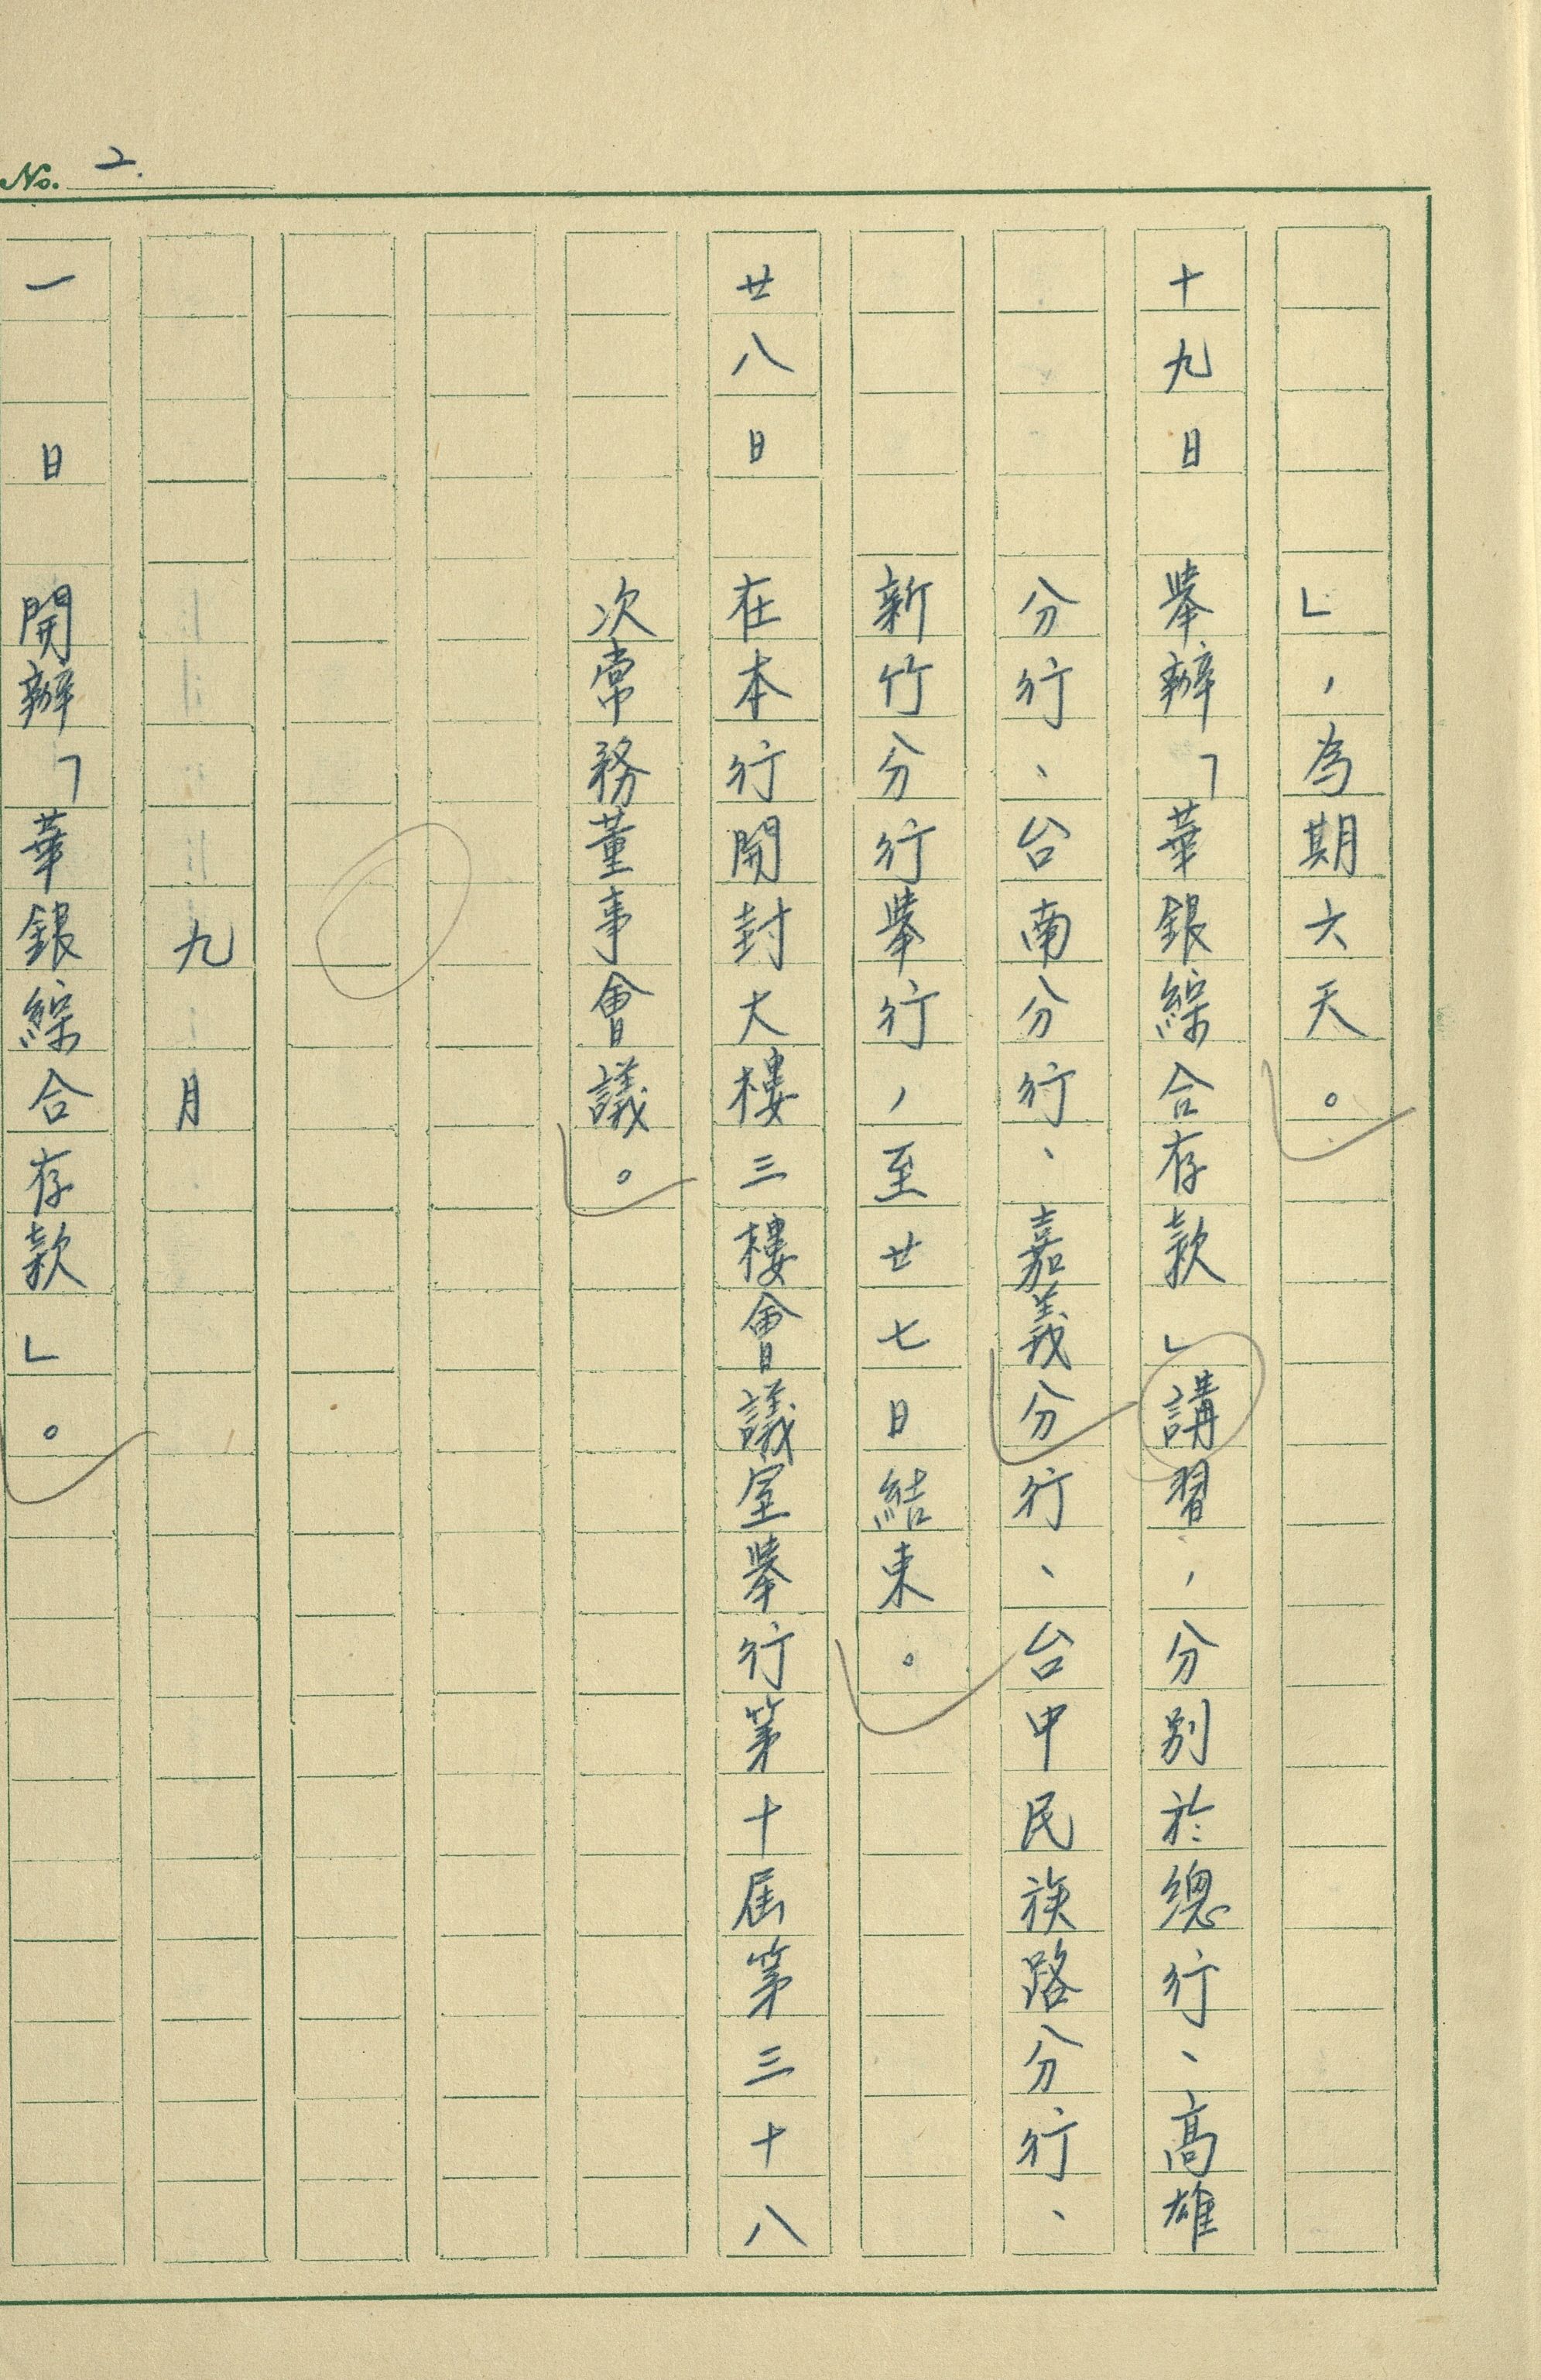 No. 2.
」，為期六天。
十九日 舉辦「華銀綜合存款」講習，分別於總行、高雄
分行、台南分行、嘉義分行、台中民族路分行、
新竹分行舉行，至廿七日結束。
廿八日 在本行開封大樓三樓會議室舉行第十屆第三十八
次常務董事會議。
九月
一日 開辦「華銀綜合存款」。